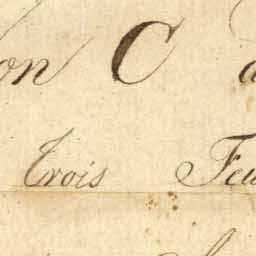 on C
trois Feu